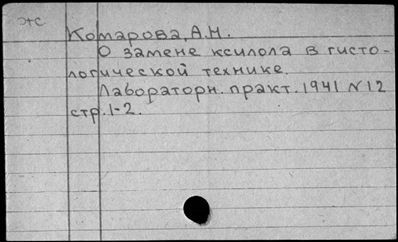 жс
Комарова, А.Н.
О замене ксилола в гисто-
логической технике.
Лабораторн. практ. 1941 N12
стр. 1-2.